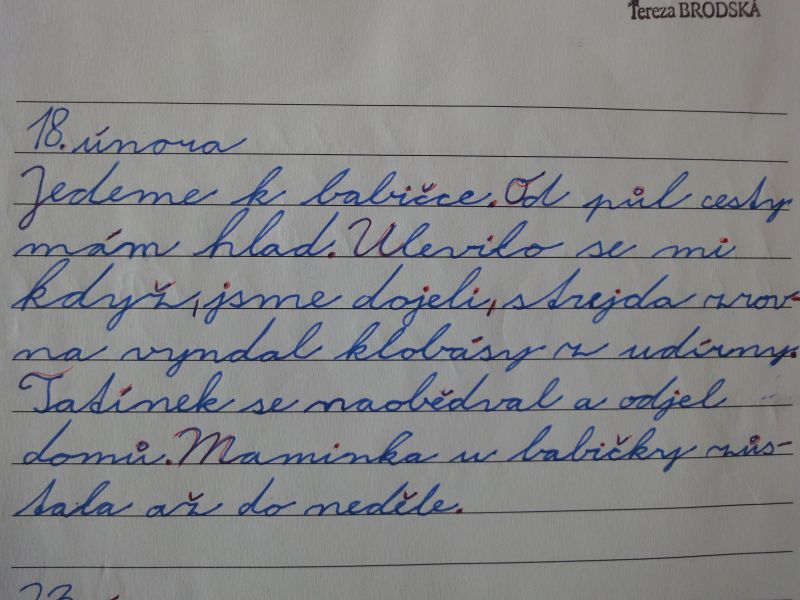 Tereza BRODSKÁ
18. února
Jedeme k babičce. Od půl cesty
mám hlad. Ulevilo se mi
když, jsme dojeli, strejda zrov-
na vyndal klobásy z udírny.
Tatínek se naobědval a odjel
domů. Maminka u babičky zůs-
tala až do neděle.